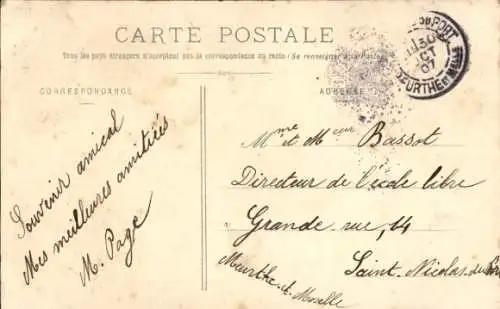 CARTE POSTALE
Tous les pays étrangers n'acceptent pas la correspondance au recto (Se renseigner à la Poste)
CORRESPONDANCE
ADRESSE
DU PORT
30
OCT
07
MEURTHE ET MLLE
Souvenir amical
Mes meilleures amitiées
M. Page
Mme et Meur Bassot
Directeur de l'école libre
Grande rue, 14
Saint-Nicolas du Port
Meurthe-et-Moselle